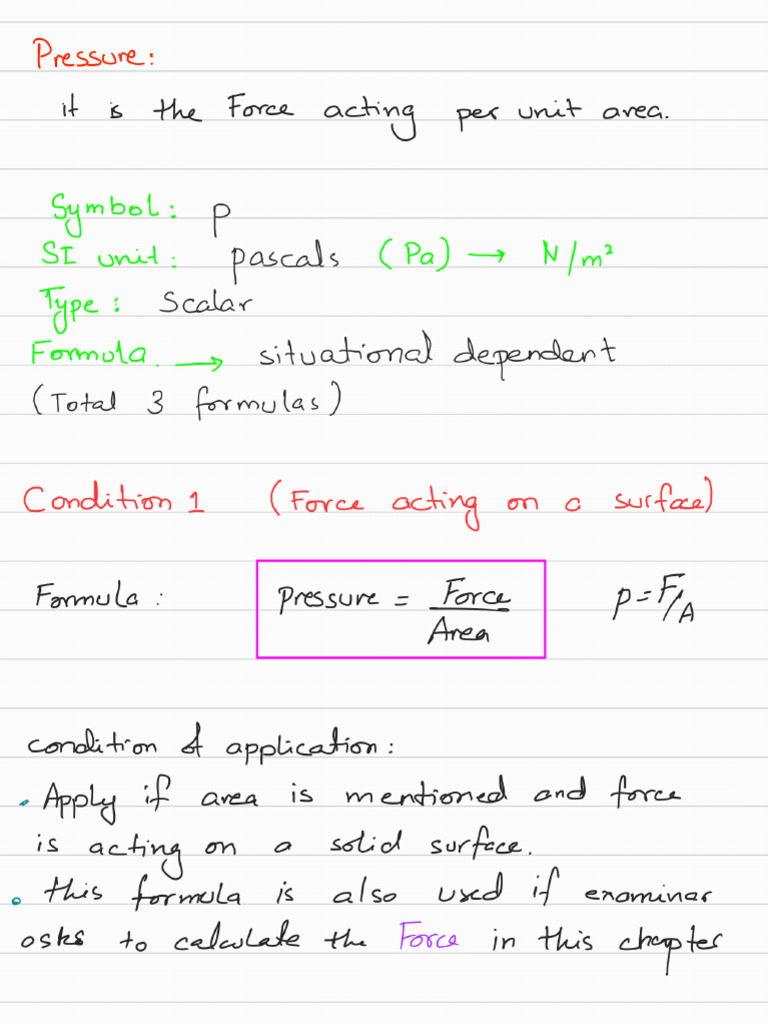 Pressure:
it is the Force acting per unit area.
Symbol: p
SI unit: pascals (Pa) → N/m²
Type: Scalar
Formula. → situational dependent
(Total 3 formulas)
Condition 1 (Force acting on a surface)
Formula: Pressure = Force/Area p = F/A
condition of application:
• Apply if area is mentioned and force
is acting on a solid surface.
• this formula is also used if examinar
asks to calculate the Force in this chapter